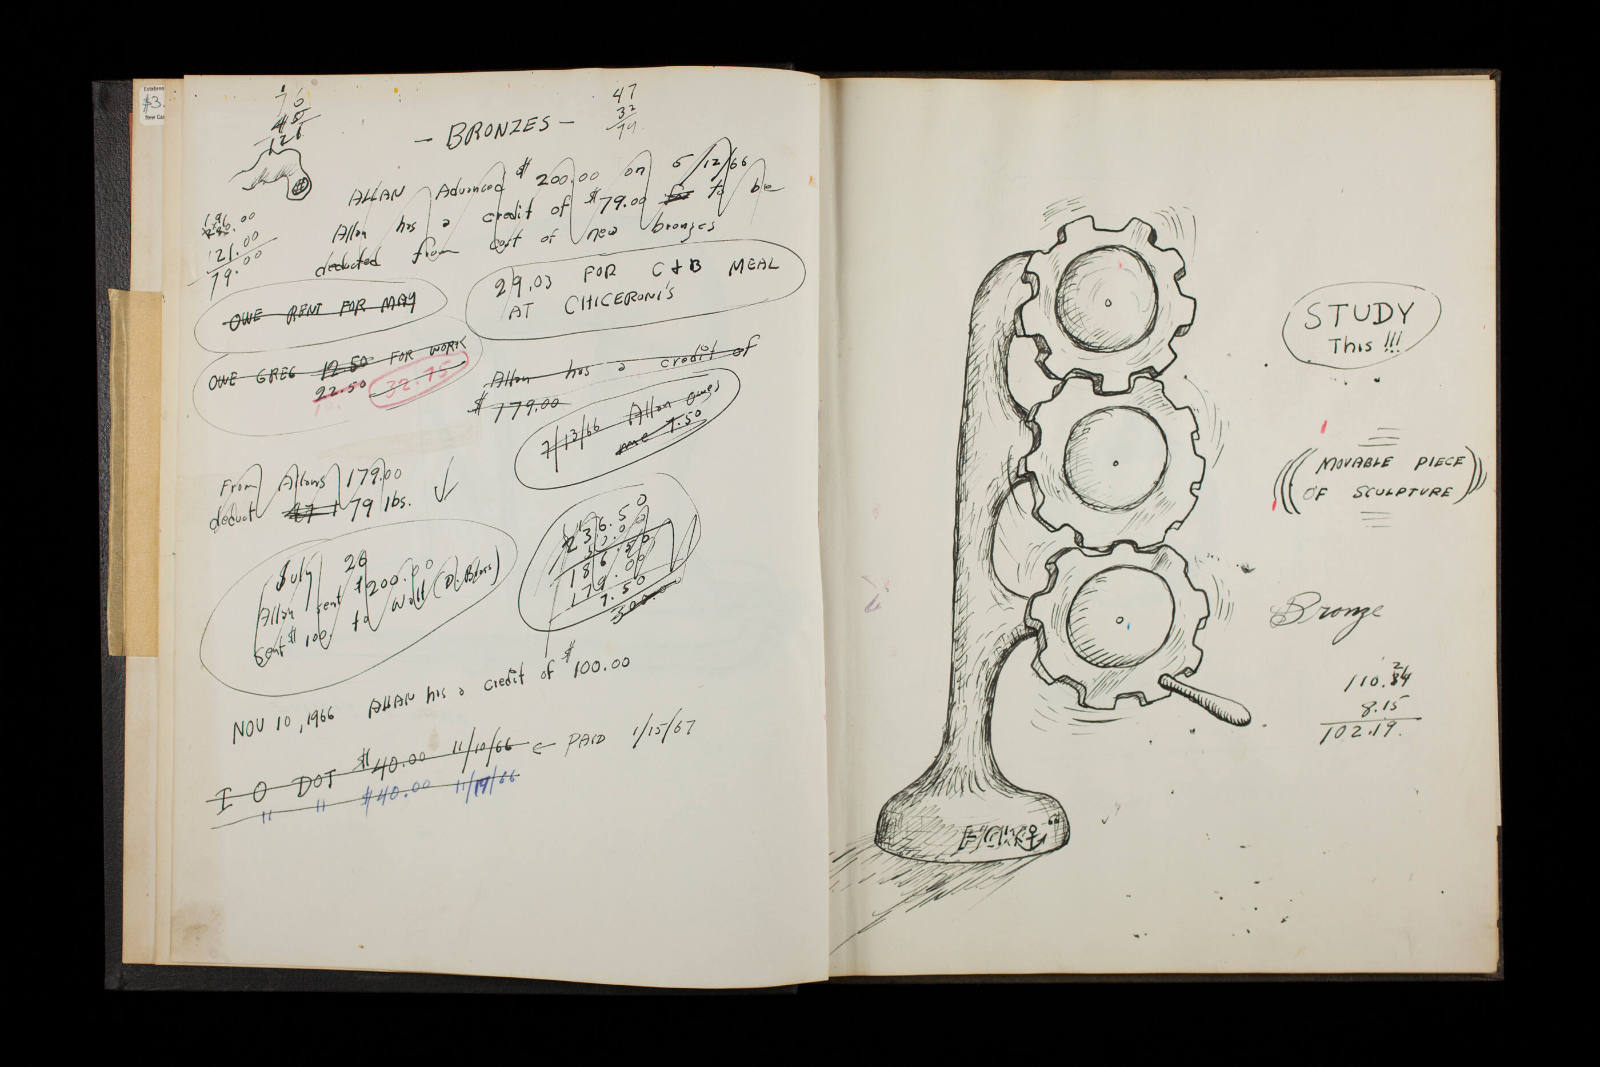 $3.
New Cas
76
45
126
- BRONZES -
47
32
79
ALLAN Advanced $200.00 on 5/12/66
Allan has a credit of $79.00 for to be
deducted from cost of new bronzes
121.00
79.00
OWE RENT FOR MAY
29.03 FOR C & B MEAL
AT CHICERONI'S
OWE GREG 12.50 FOR WORK
22.50 32.75
Allan has a credit of
$179.00
7/13/66 Allan owes
me 7.50
From Allans 179.00
deduct 47 179 lbs.
236.50
186.50
179.00
7.50
July 26
Allan sent $200.00
Sent $100 to Walt
NOV 10, 1966 ALLAN has a credit of $100.00
I O DOT $40.00 11/10/66 ← PAID 1/15/67
" " $40.00 11/19/66
STUDY
This !!!
(((MOVABLE PIECE
OF SCULPTURE)))
Bronze
110.34
8.15
102.19